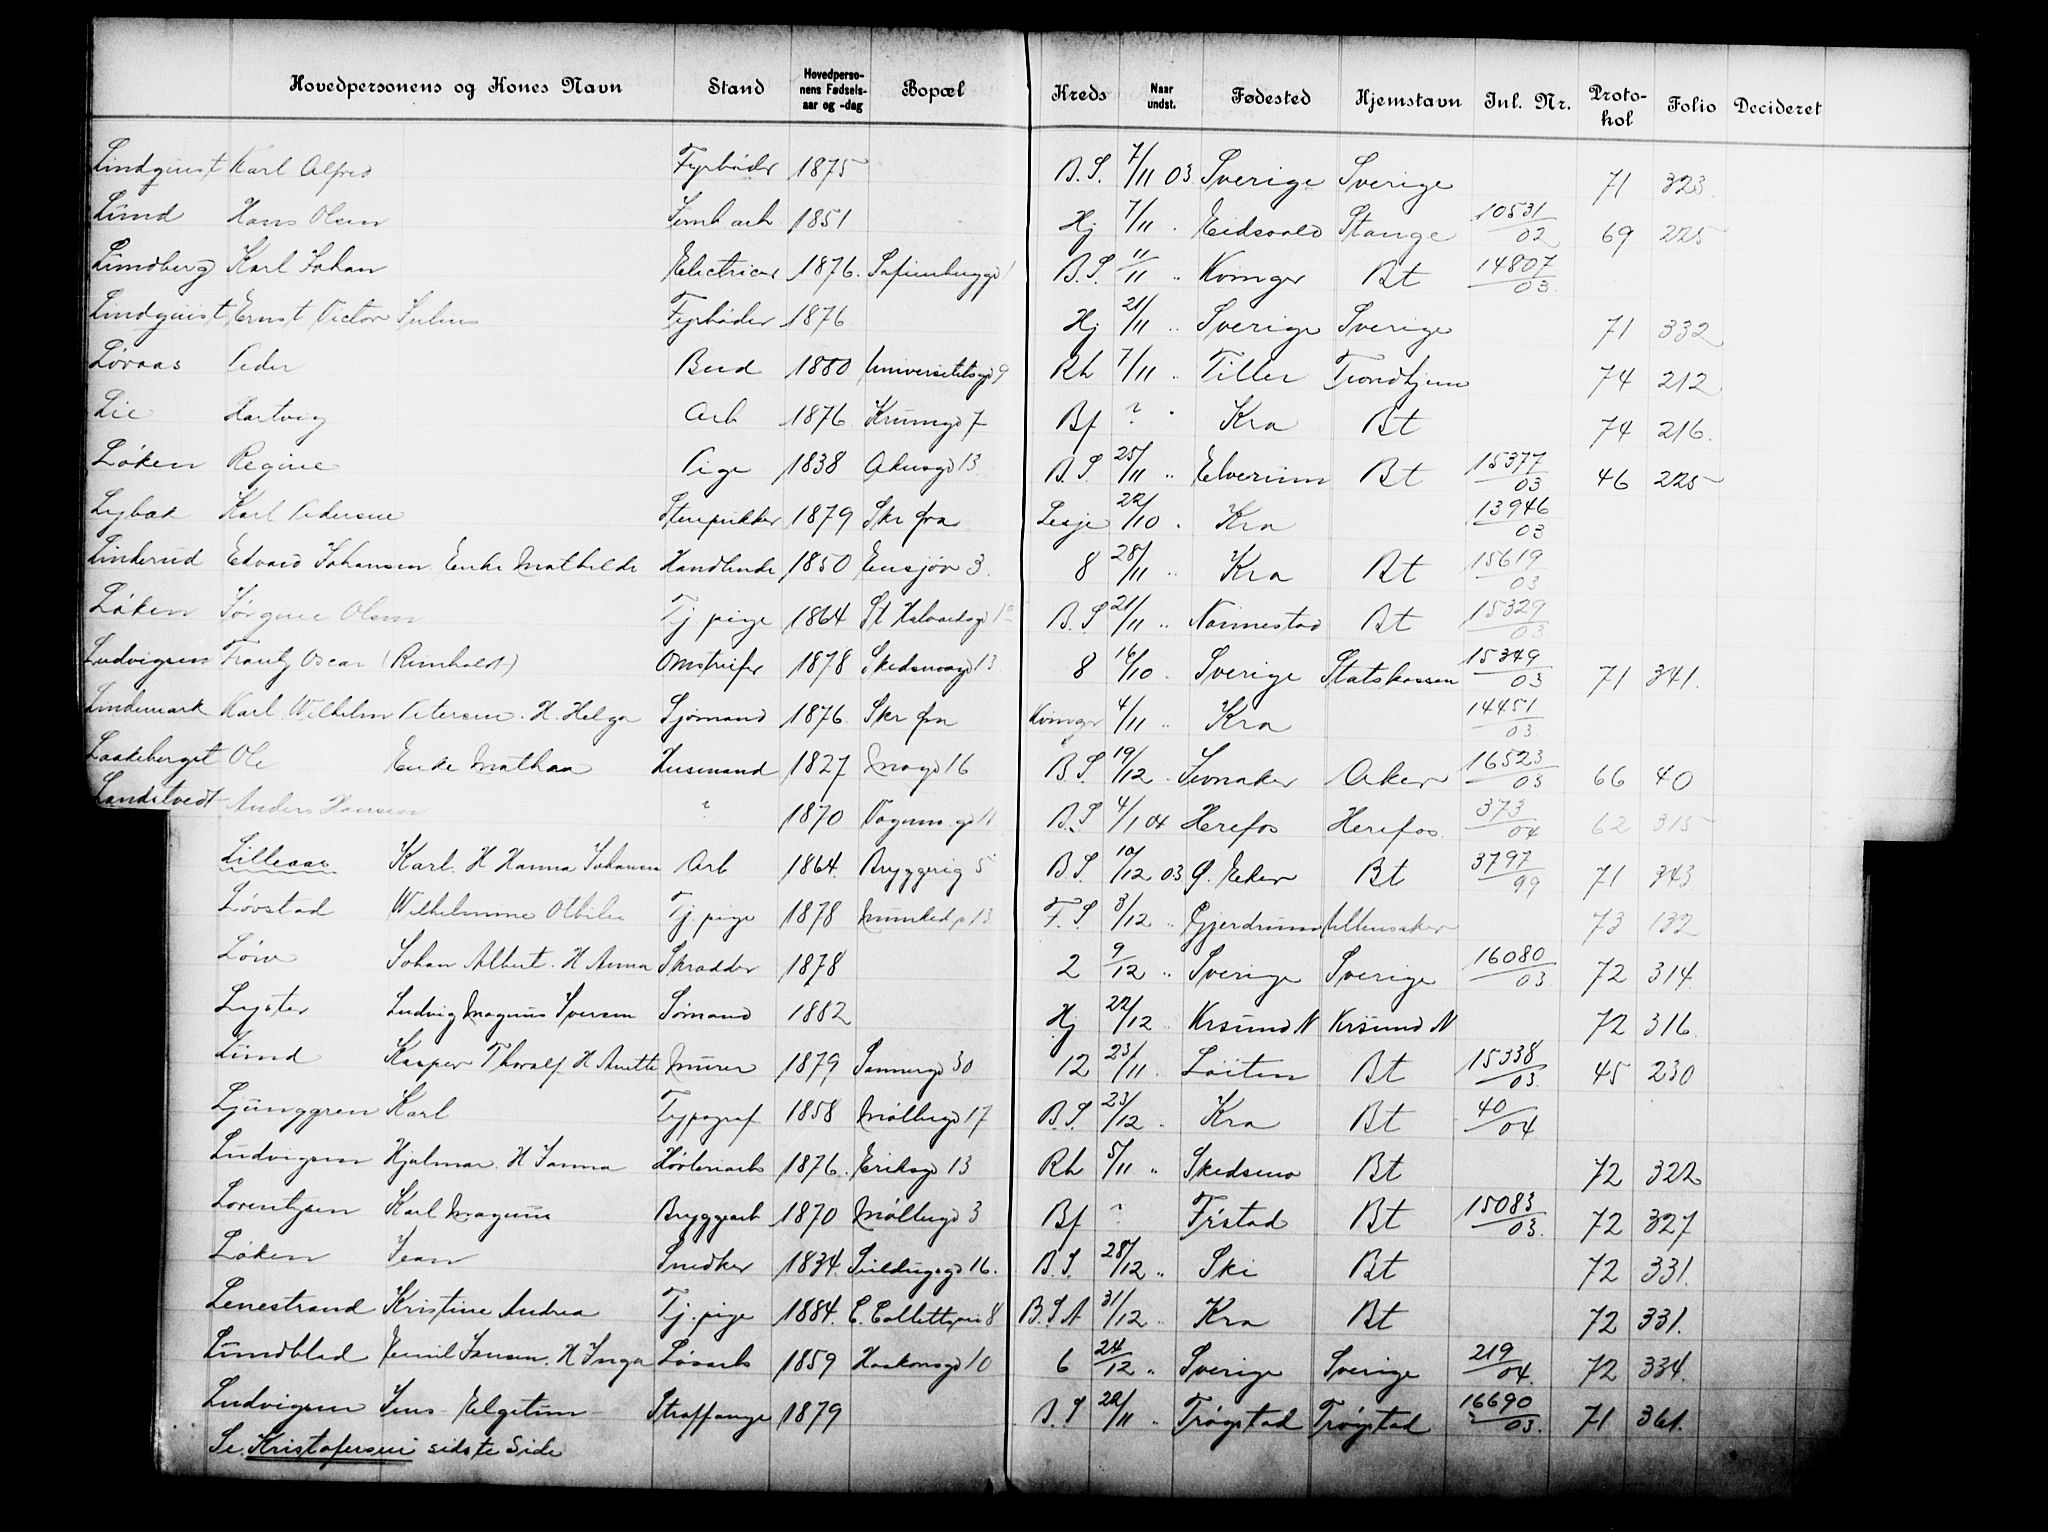 Hovedpersonens og Kones Navn Stand Hovedpersonens Fødselsaar og -dag Bopæl Kreds Naar undst. Fødested Hjemstavn Inl. Nr. Protokol Folio Decideret
Lindquist Karl Alfred Fyrbøder 1875 B.S. 7/11 03 Sverige Sverige 71 323.
Lund Hans Olsen Jernb arb 1851 Hj 7/11 Eidsvold Stange 10531/02 69 225
Lundberg Karl Johan Electriker 1876. B.S. 11/11 " Kvinger Bt 14807/03.
Lindquist Ernst Victor Julius Fyrbøder 1876 Hj 21/11 " Sverige Sverige 71 332
Løvaas Peder Bud 1880 Universitetsgd 9 Rh 7/11 " Tiller Trondhjem 74 212
Lie Hartvig Arb 1876 Krumgd 7 Bf ? " Kra Bt 74 216.
Løken Regine Pige 1838 Akersgd 13. B.S. 25/11 " Elverum Bt 15377/03 46 225
Lybæk Karl Pedersen Stenpukker 1879 Skr fra Lesje 22/10 " Kra 13946/03
Linderud Edvard Johansen Enke Mathilde Handlende 1850 Ensjøv 3. 8 28/11 " Kra Bt 15619/03
Løken Jørgine Olsen Tj. pige 1864 St Halvardsgd 1a B.S 21/11 " Nannestad Bt 15329/03
Ludvigsen Frantz Oscar (Reinholdt) Omstreifer 1878 Skedsmogd 13 8 16/10 Sverige Statskassen 15349/03 71 341.
Lindemark Karl Wilhelm Petersen. H. Helga Sjømand 1876. Skr fra Kvinger 4/11 " Kra 14451/03.
Laakeberget Ole Enke Mathea Husmand 1827 16 B.S. 19/12 Jevnaker Aker 16523/03 66 40
Landstvedt Anders Hansen ? 1870 Vognmgd 11 B.S 4/1 04 Herefos Herefos. 373/04 62 315
Lilleaas Karl. H Hanna Johansen Arb 1864. Bryggerig 5 B.S. 10/12 03. Ø. Eker Bt 3797/99 71 343.
Løvstad Wilhelmine Otilie Tj. pige 1878 Munked p 13. F.S 3/12 " Gjerdrum Ullensaker 73 132
Løw Johan Albert. H Anna Skrædder 1878 2 9/12 " Sverige Sverige 16080/03 72 314.
Lyster Ludvig Magnus Iversen Sømand 1882 Hj 22/12 " Krsund N Krsund N 72 316.
Lund Kasper Thoralf H Anette Murer 1879 Sannergd 30 12 23/11 Løiten Bt 15338/03. 45 230
Ljunggren Karl Typograf 1858 Møllergd 17 B.S. 23/12 " Kra Bt 40/04.
Ludvigsen Hjalmar. H Hanna Høvleriarb 1876. Eriksgd 13 Rh 5/11 " Skedsmo Bt 72 322
Lorentzen Karl Magnus Bryggearb 1870 Møllergd 3 Bf ? Frstad Bt 15083/03. 72 327
Løken Jean Snedker 1834. 16. B.S. 28/12 " Ski Bt 72 331.
Lenestrand Kristine Andrea Tj. pige 1884. C. Colletts vei 8 B.S.A 31/12 " Kra Bt 72 331.
Lundblad Emil Jensen. H Inga Løsarb 1859 Haakonsgd 10 6 24/12 " Sverige Sverige 219/04. 72 334.
Ludvigsen Jens Elgetun Straffange 1879 B.S 22/11 " Trøgstad Trøgstad 16690/03. 71 361.
Se. Kristofersen sidste Side